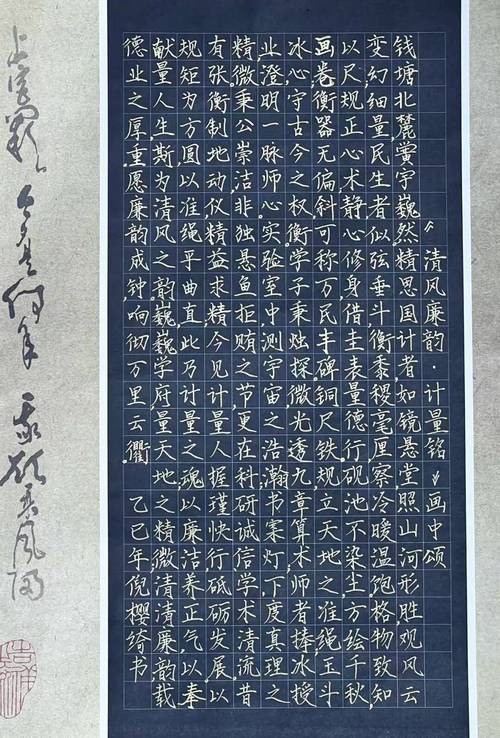 《清风廉韵·计量铭》画中颂
钱塘北麓黉宇巍然精思国计者如镜悬堂照山河形胜观风云
变幻细量民生者似弦垂斗衡黍稷毫厘察冷暖温饱格物致知
以尺规正心术静心修身借圭表量德行砚池不染尘方绘千秋
画卷衡器无偏斜可称万民丰碑铜尺铁规立天地之准绳玉斗
冰心守古今之权衡学子秉烛探微光透九章算术师者捧冰授
业澄明一脉师心实验室中测宇宙之浩瀚书案灯下度真理之
精微秉公崇洁非独悬鱼拒贿之节更在科研诚信学术清流昔
有张衡制地动仪精益求精今见计量人握瑾快行砥砺发展以
规矩为方圆以准绳乎曲直此乃计量之魂以廉洁养正气以奉
献量人生斯为清风之韵巍巍学府量天地之精微清清廉韵载
德业之厚重愿廉韵成钟响彻万里云衢 乙巳年倪樱绮书
上宫阙今夕是何年我欲乘风归